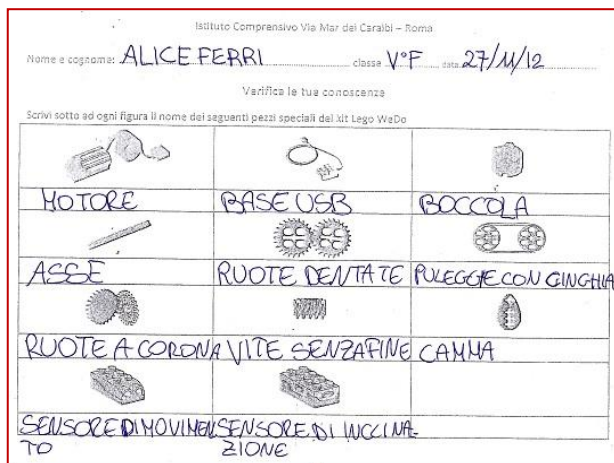 Istituto Comprensivo Via Mar dei Caraibi – Roma
Nome e cognome: ALICE FERRI classe V°F data 27/11/12
Verifica le tue conoscenze
Scrivi sotto ad ogni figura il nome dei seguenti pezzi speciali del kit Lego WeDo
MOTORE BASE USB BOCCOLA
ASSE RUOTE DENTATE PULEGGE CON CINGHIA
RUOTE A CORONA VITE SENZAFINE CAMMA
SENSORE DI MOVIMEN SENSORE DI INCLINA-
TO ZIONE